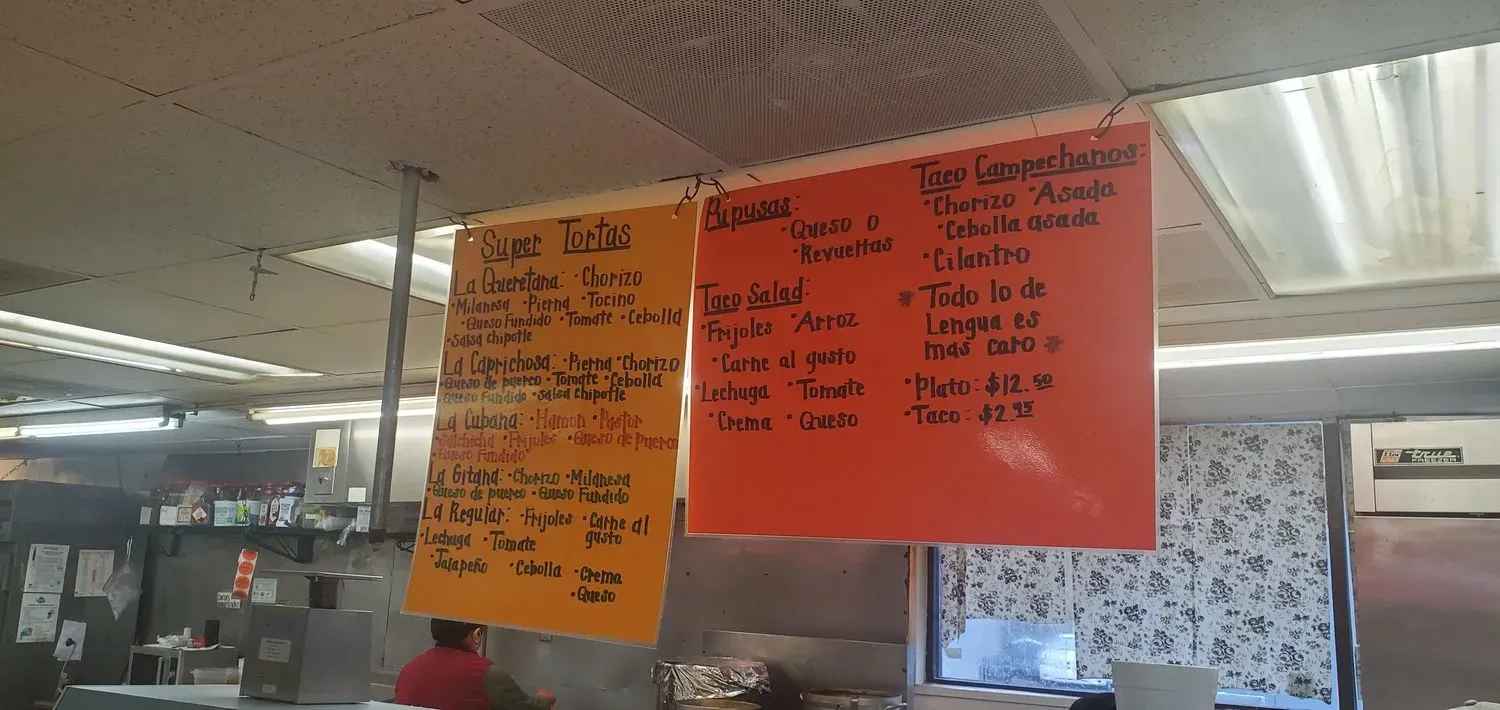 Super Tortas
La Queretana: · Chorizo
· Milanesa · Pierna · Tocino
· Queso Fundido · Tomate · Cebolla
· Salsa chipotle
La Caprichosa: · Pierna · Chorizo
· Queso de puerco · Tomate · Cebolla
Queso Fundido · salsa chipotle
La Cubana: · Hamon · Pastor
· Salchicha · Frijoles · Queso de puerco
· Queso Fundido
La Gitana: · Chorizo · Milanesa
· Queso de puerco · Queso Fundido
La Regular: · Frijoles · Carne al gusto
· Lechuga · Tomate
· Jalapeño · Cebolla · Crema
· Queso
Pupusas:
· Queso o
· Revueltas
Taco Salad:
· Frijoles · Arroz
· Carne al gusto
· Lechuga · Tomate
· Crema · Queso
Taco Campechanos:
· Chorizo · Asada
· Cebolla asada
· Cilantro
* Todo lo de
Lengua es
mas caro *
· Plato: $12.50
· Taco: $2.95
true
FREEZER